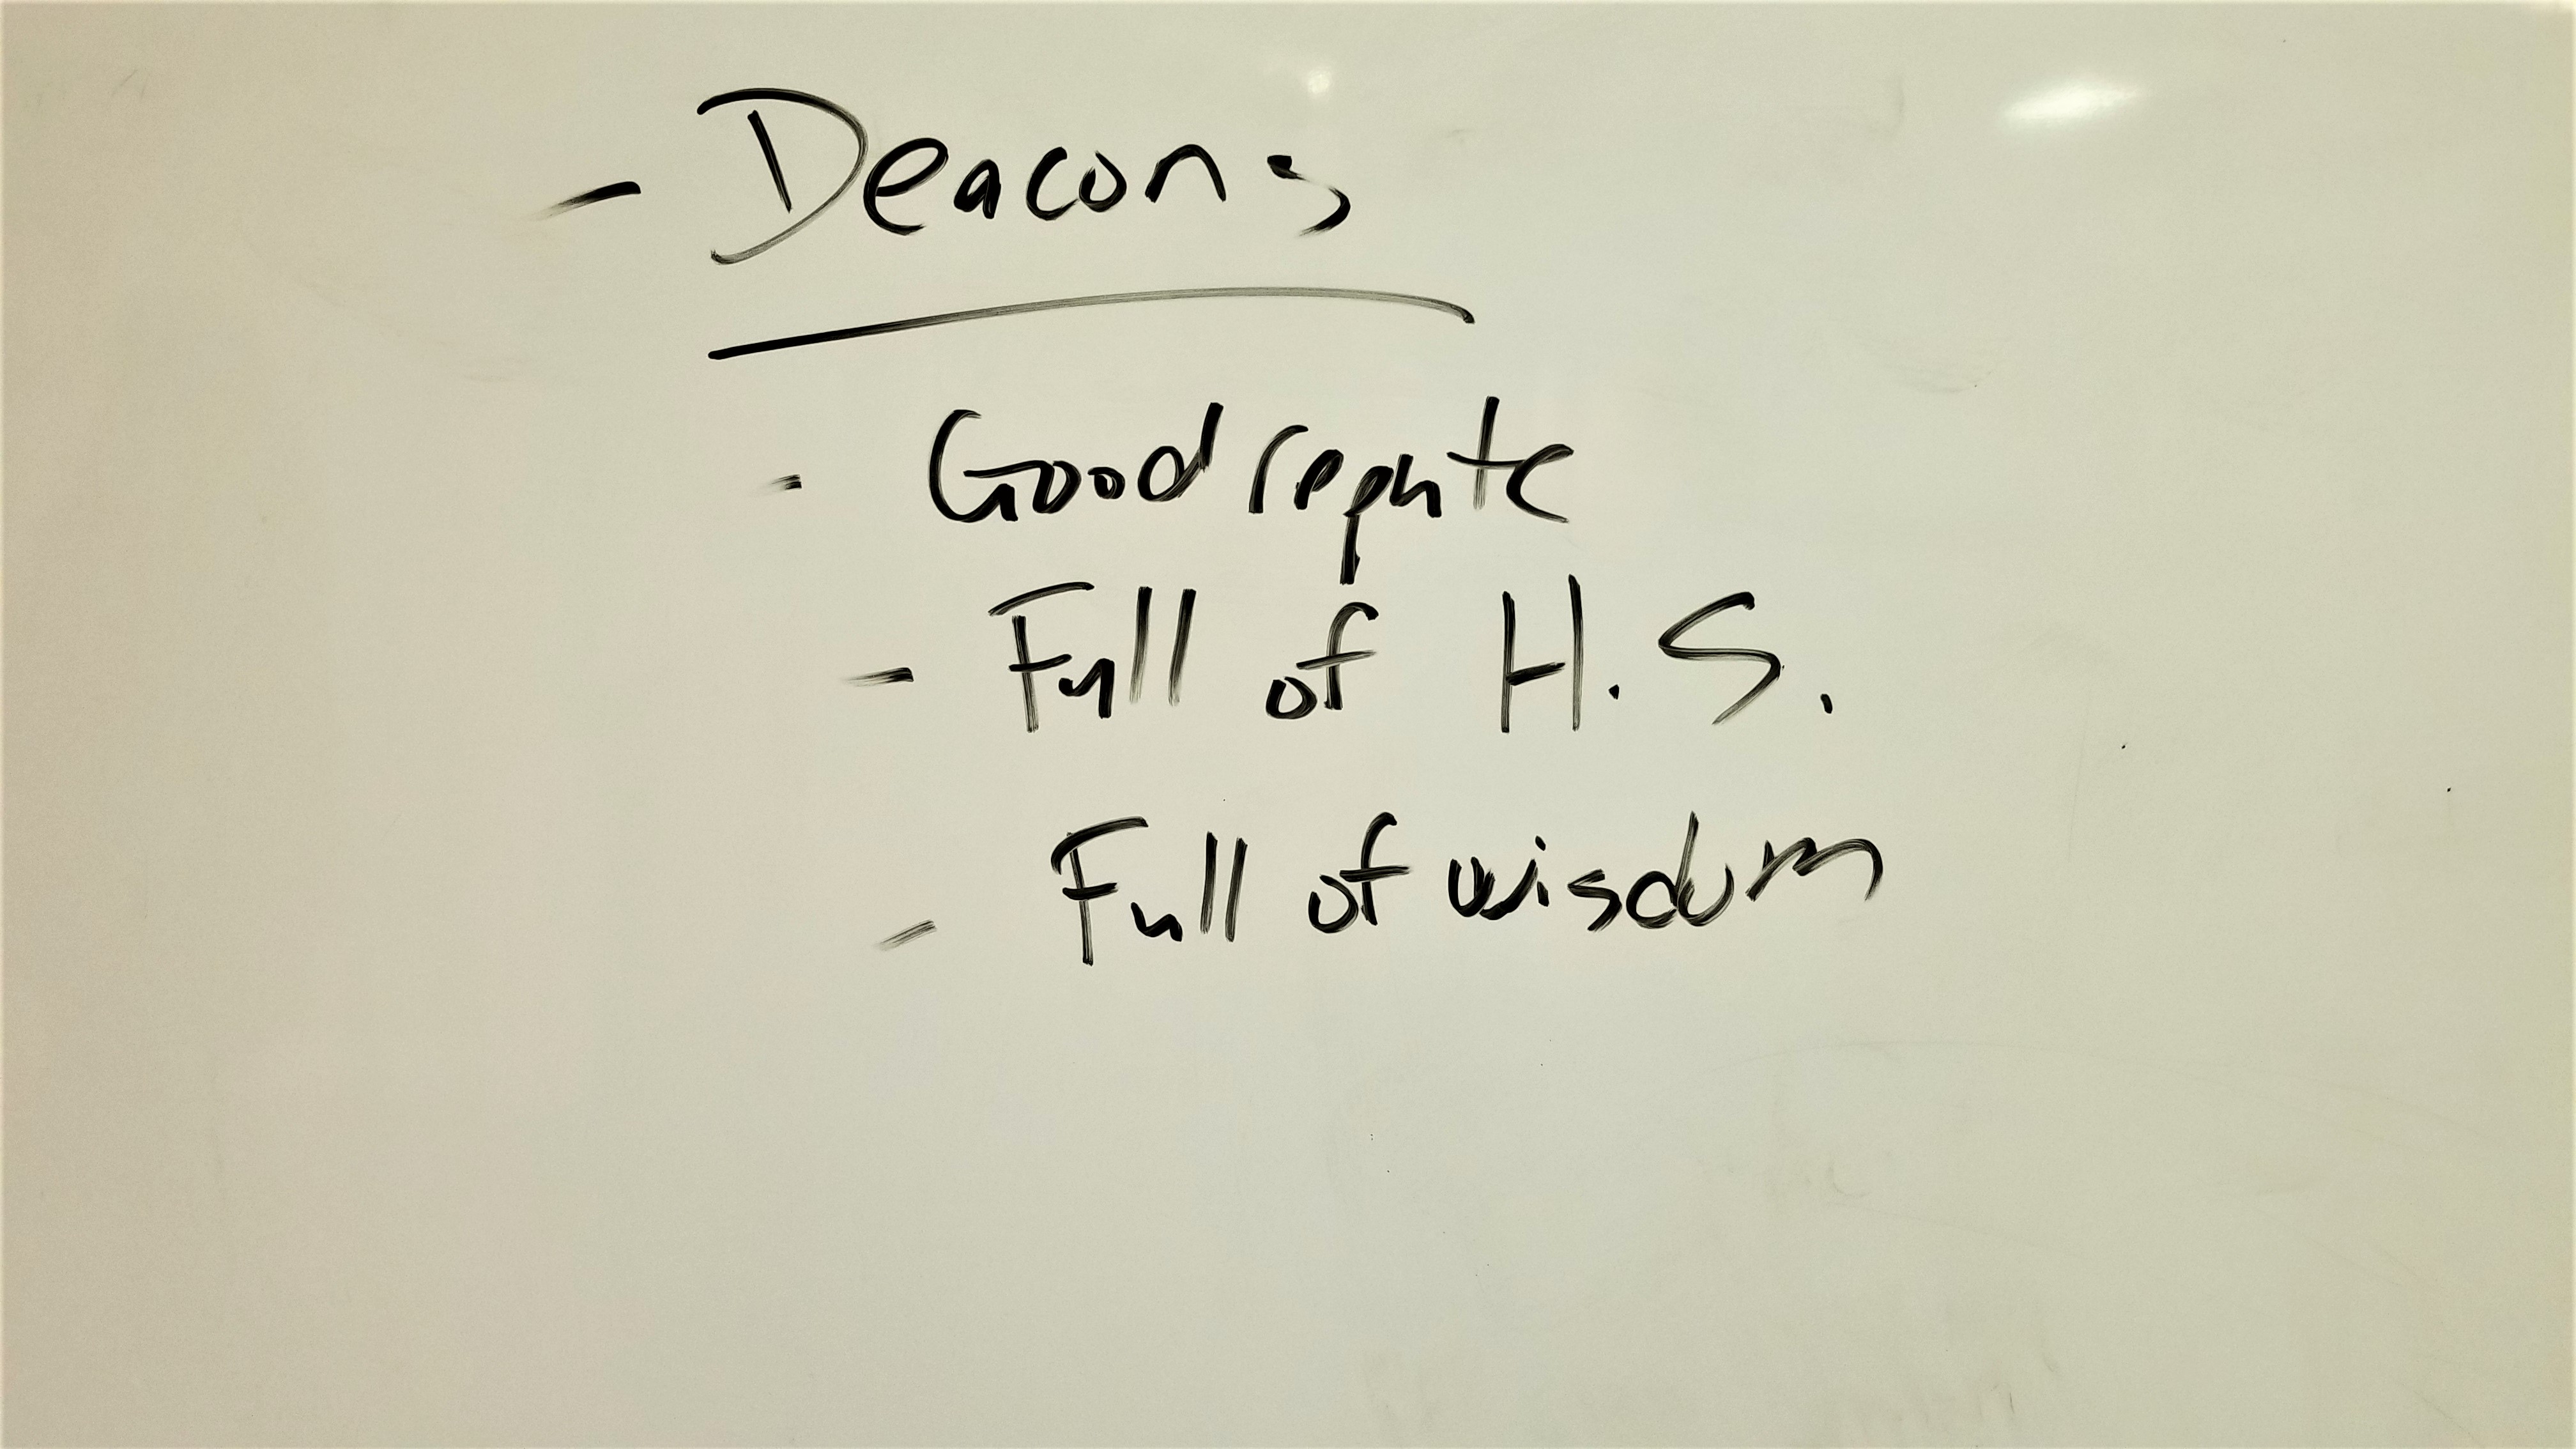 - Deacons
- Good repute
- Full of H.S.
- Full of wisdom